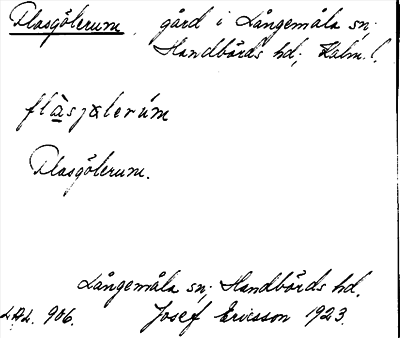 Flasgölerum, gård i Långemåla sn;
Handbörds hd; Kalm. l.
flàsjələrúm
Flasgölerum.
Långemåla sn; Handbörds hd.
LAL. 906. Josef Ericsson 1923.